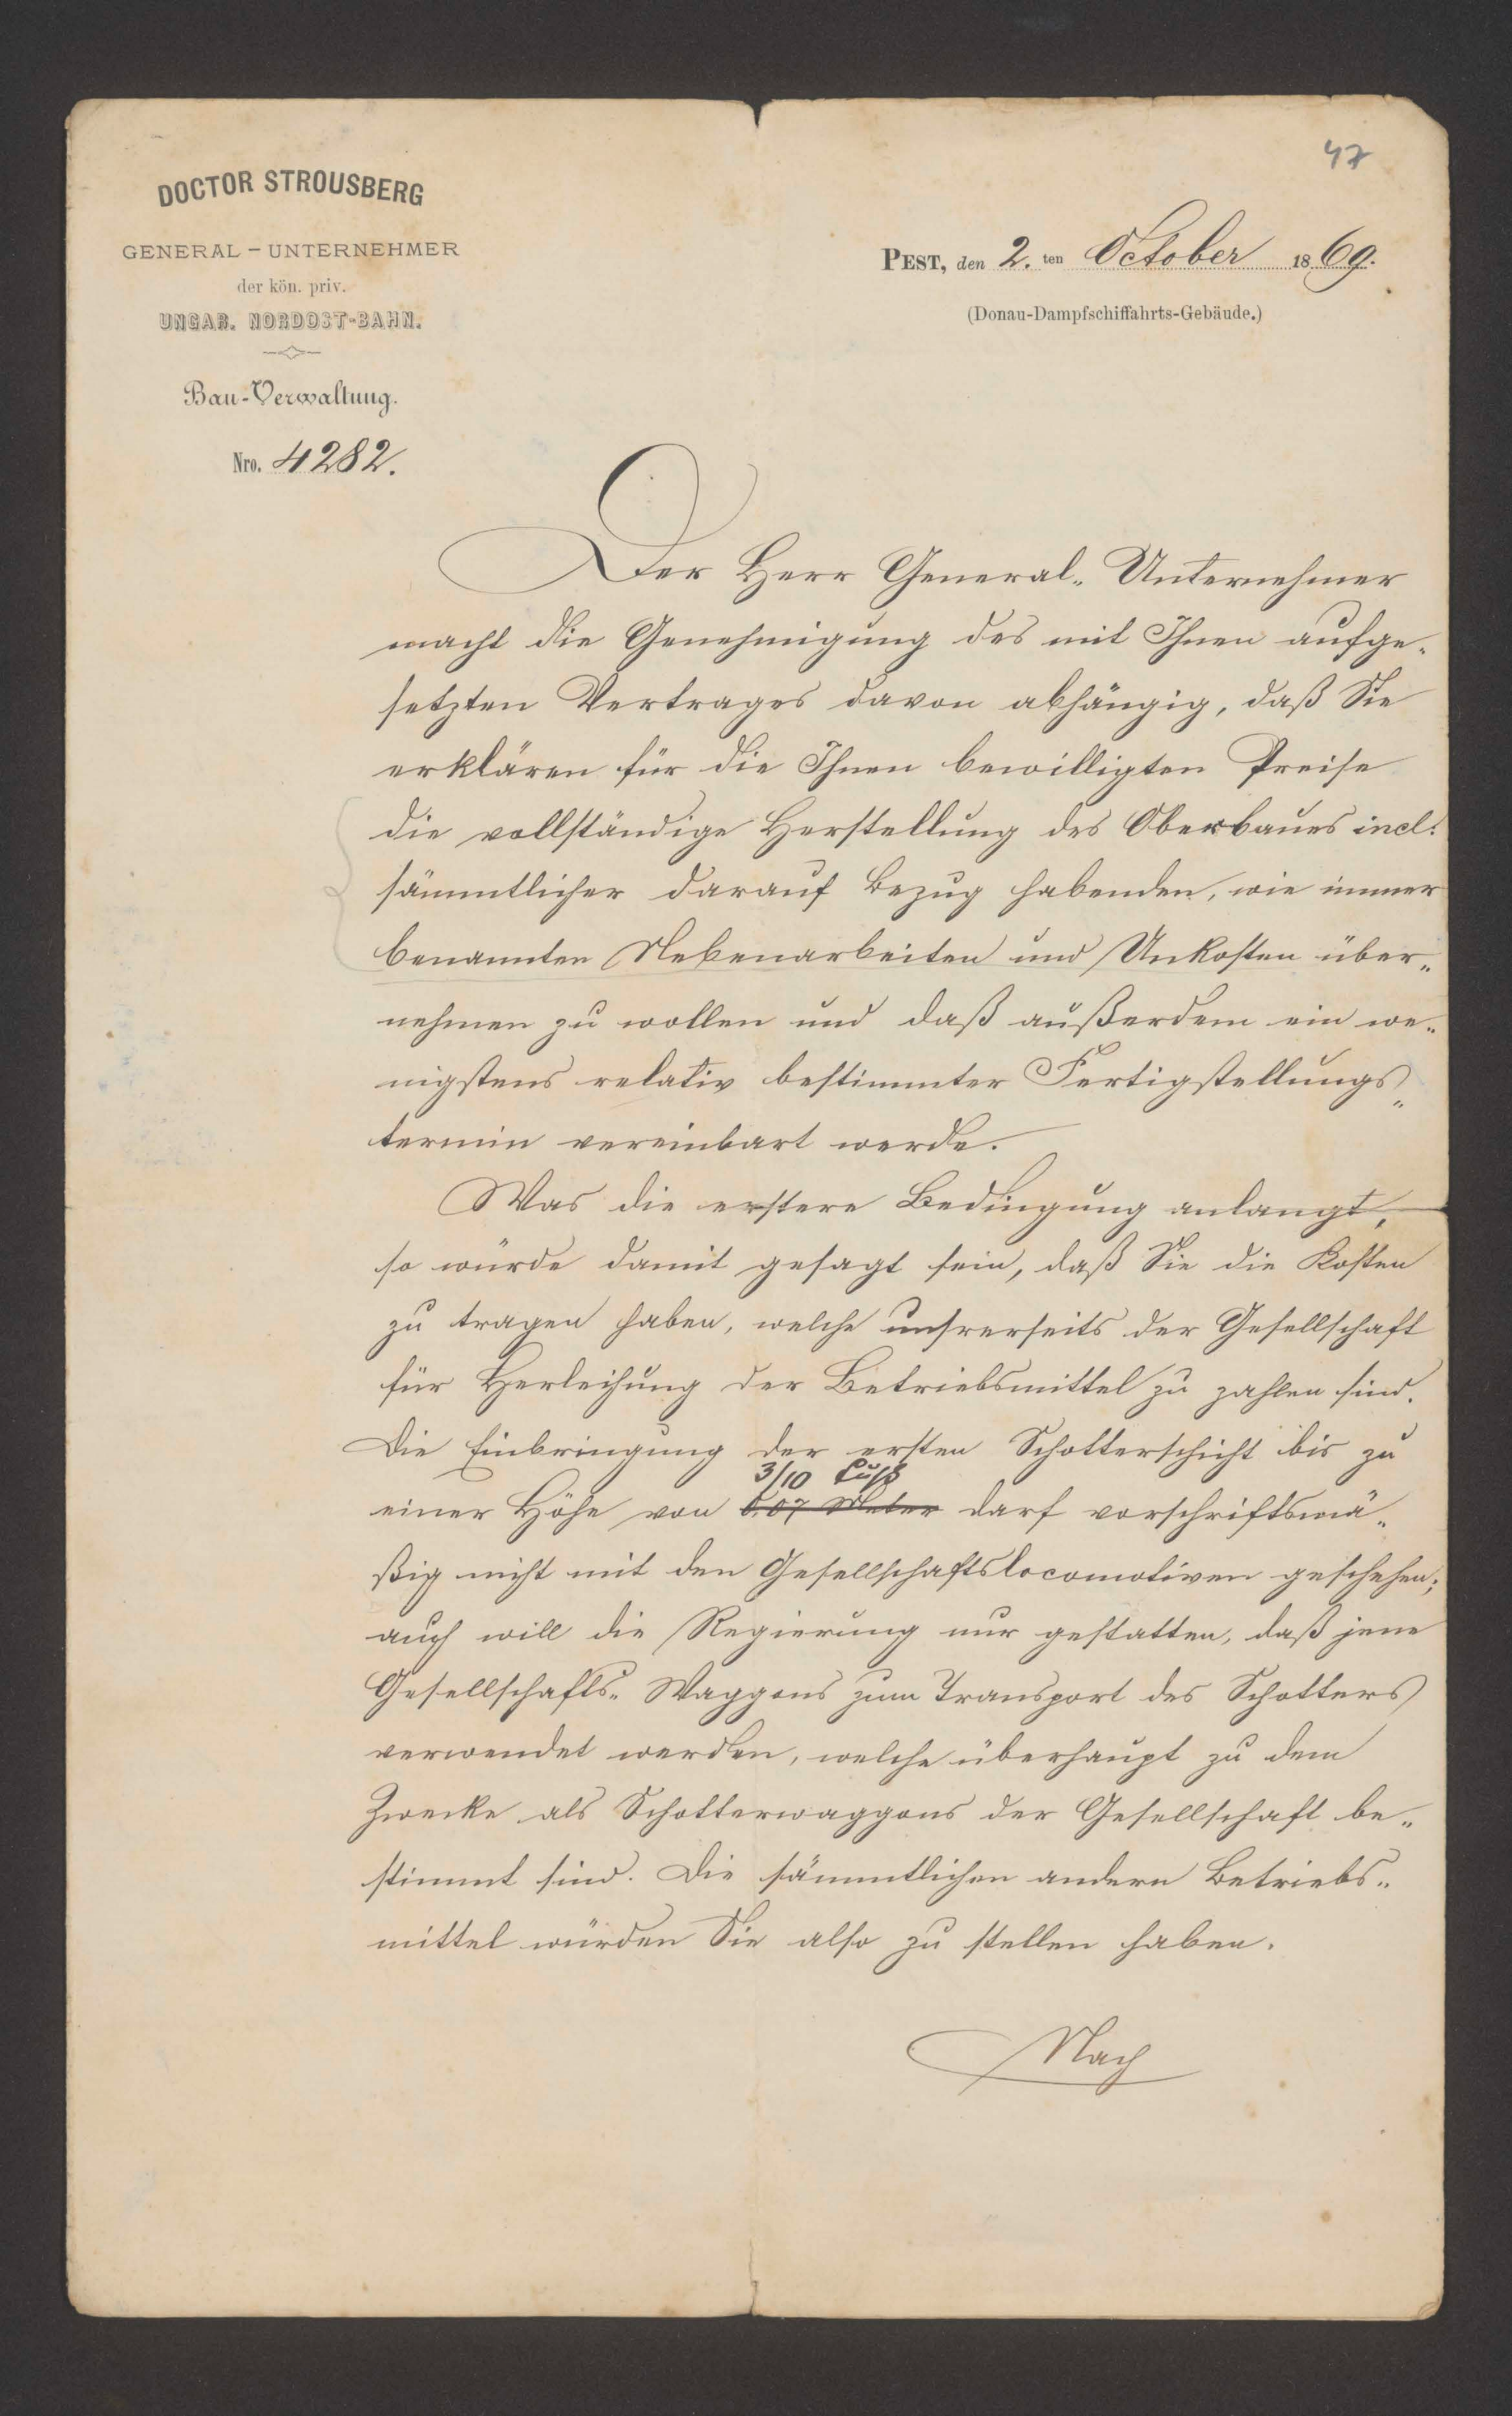 47
DOCTOR STROUSBERG
GENERAL-UNTERNEHMER
der kön. priv.
UNGAR. NORDOST-BAHN.
Bau-Verwaltung.
Nro. 4282.
PEST, den 2. ten October 1869.
(Donau-Dampfschiffahrts-Gebäude.)
Der Herr General-Unternehmer
macht die Genehmigung des mit Ihnen aufge-
setzten Vertrages davon abhängig, daß Sie
erklären für die Ihnen bewilligten Preise
die vollständige Herstellung des Oberbaues incl.
sämmtlicher darauf Bezug habenden, wie immer
benannten Nebenarbeiten und Unkosten über-
nehmen zu wollen und daß außerdem ein we-
nigstens relativ bestimmter Fertigstellungs-
termin vereinbart werde.
Was die erstere Bedingung anlangt,
so würde damit gesagt sein, daß Sie die Kosten
zu tragen haben, welche unsrerseits der Gesellschaft
für Herleihung der Betriebsmittel zu zahlen sind.
Die Einbringung der ersten Schotterschicht bis zu
3/10 Fuß
einer Höhe von 0.07 Meter darf vorschriftsmä-
ßig nicht mit den Gesellschaftslocomotiven geschehen;
auch will die Regierung nur gestatten, daß jene
Gesellschafts-Waggons zum Transport des Schotters
verwendet werden, welche überhaupt zu dem
Zwecke als Schotterwaggons der Gesellschaft be-
stimmt sind. Die sämmtlichen andern Betriebs-
mittel würden Sie also zu stellen haben.
Nach